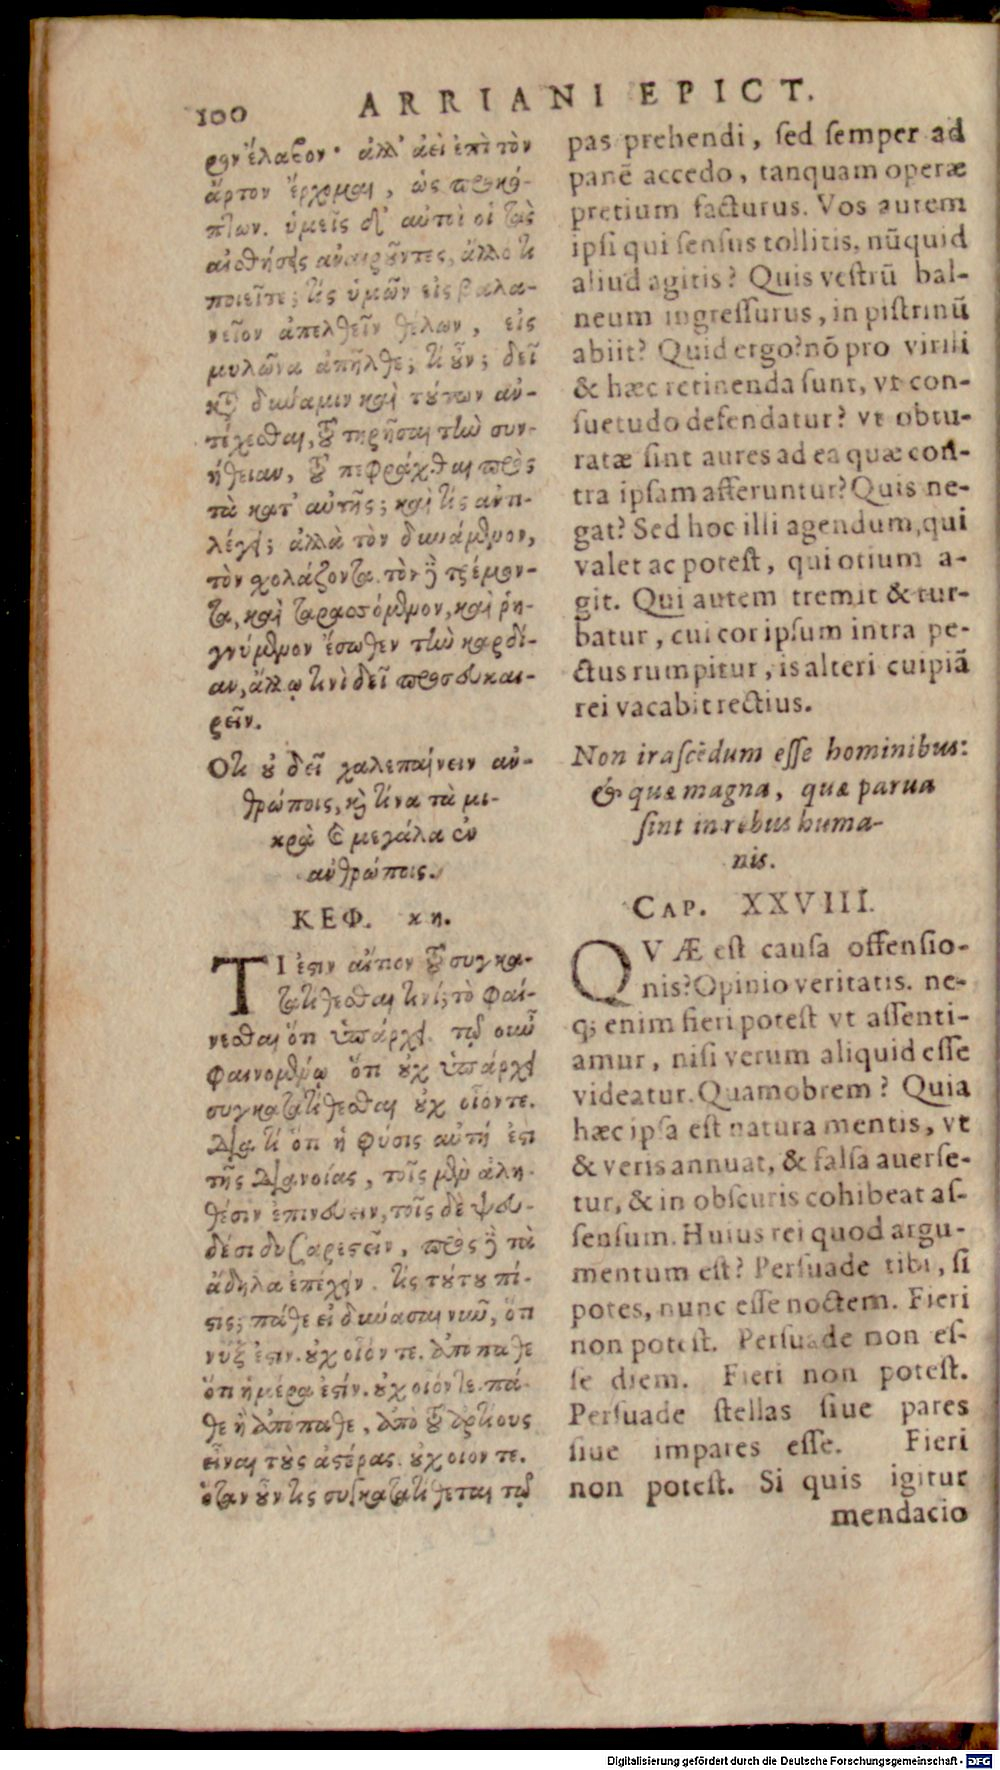 100 ARRIANI EPICT.
ρον ἔλαβον· ἀλλ' ἀεὶ ἐπὶ τὸν
ἄρτον ἔρχομαι, ὡς προκό-
πτων. ὑμεῖς δ' αὐτοὶ οἱ τὰς
αἰσθήσεις ἀναιροῦντες, ἄλλο τι
ποιεῖτε; τίς ὑμῶν εἰς βαλα-
νεῖον ἀπελθεῖν θέλων, εἰς
μυλῶνα ἀπῆλθε; τί οὖν; δεῖ
κατὰ δύναμιν καὶ τούτων ἀν-
τέχεσθαι, τοῦ τηρῆσαι τὴν συν-
ήθειαν, τοῦ πεφράχθαι πρὸς
τὰ κατ' αὐτῆς; καὶ τίς ἀντι-
λέγει; ἀλλὰ τὸν δυνάμενον,
τὸν σχολάζοντα. τὸν δὲ τρέμον-
τα, καὶ ταρασσόμενον, καὶ ῥη-
γνύμενον ἔσωθεν τὴν καρδί-
αν, ἄλλῳ τινὶ δεῖ προσευκαι-
ρεῖν.
Ὅτι οὐ δεῖ χαλεπαίνειν ἀν-
θρώποις, καὶ τίνα τὰ μι-
κρὰ καὶ μεγάλα ἐν
ἀνθρώποις.
ΚΕΦ. κη.
ΤΙ ἐστιν αἴτιον τοῦ συγκα-
τατίθεσθαι τινί; τὸ φαί-
νεσθαι ὅτι ὑπάρχει. τῷ οὖν
φαινομένῳ ὅτι οὐχ ὑπάρχει
συγκατατίθεσθαι οὐχ οἷόντε.
Διὰ τί ὅτι ἡ φύσις αὐτή ἐστι
τῆς διανοίας, τοῖς μὲν ἀλη-
θέσιν ἐπινεύειν, τοῖς δὲ ψευ-
δέσι δυσαρεστεῖν, πρὸς δὲ τὰ
ἄδηλα ἐπέχειν. τίς τούτου πί-
στις; πάθε εἰ δύνασαι νῦν, ὅτι
νύξ ἐστιν. οὐχ οἷόν τε. ἀπόπαθε
ὅτι ἡμέρα ἐστίν. οὐχ οἷόντε. πά-
θε ἢ ἀπόπαθε, ἀπὸ τοῦ ἀρτίους
εἶναι τοὺς ἀστέρας. οὐχ οἷον τε.
ὅταν οὖν τὶς συγκατατίθεται τῷ
pas prehendi, sed semper ad
panē accedo, tanquam operæ
pretium facturus. Vos autem
ipsi qui sensus tollitis, nūquid
aliud agitis? Quis vestrū bal-
neum ingressurus, in pistrinū
abiit? Quid ergo? nō pro virili
& hæc retinenda sunt, vt con-
suetudo defendatur? vt obtu-
ratæ sint aures ad ea quæ con-
tra ipsam afferuntur? Quis ne-
gat? Sed hoc illi agendum, qui
valet ac potest, qui otium a-
git. Qui autem tremit & tur-
batur, cui cor ipsum intra pe-
ctus rumpitur, is alteri cuipiā
rei vacabit rectius.
Non irascēdum esse hominibus:
& quæ magna, quæ parua
sint in rebus huma-
nis.
CAP. XXVIII.
QVÆ est causa offensio-
nis? Opinio veritatis. ne-
q; enim fieri potest vt assenti-
amur, nisi verum aliquid esse
videatur. Quamobrem? Quia
hæc ipsa est natura mentis, vt
& veris annuat, & falsa auerse-
tur, & in obscuris cohibeat as-
sensum. Huius rei quod argu-
mentum est? Persuade tibi, si
potes, nunc esse noctem. Fieri
non potest. Persuade non es-
se diem. Fieri non potest.
Persuade stellas siue pares
siue impares esse. Fieri
non potest. Si quis igitur
mendacio
Digitalisierung gefördert durch die Deutsche Forschungsgemeinschaft - DFG